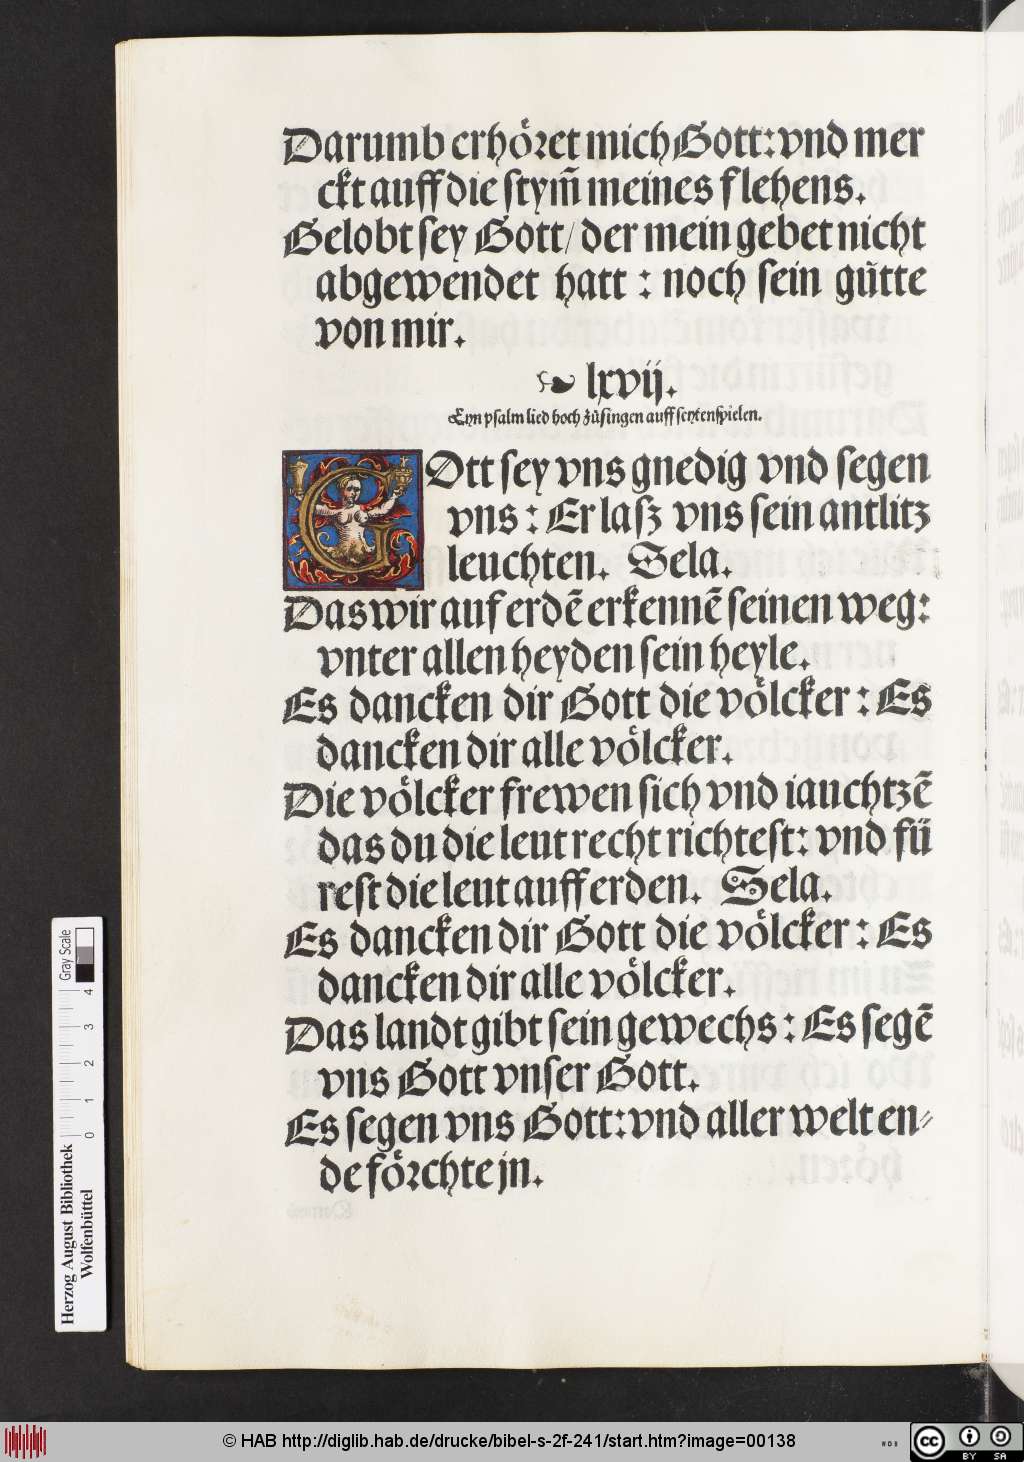 Darumb erhöret mich Gott: vnd mer
ckt auff die stym̃ meines flehens.
Gelobt sey Gott/ der mein gebet nicht
abgewendet hatt: noch sein gůtte
von mir.
lxvij.
Eyn psalm lied hoch zůsingen auff seytenspielen.
GOtt sey vns gnedig vnd segen
vns: Er laß vns sein antlitz
leuchten. Sela.
Das wir auf erdẽ erkennẽ seinen weg:
vnter allen heyden sein heyle.
Es dancken dir Gott die völcker: Es
dancken dir alle völcker.
Die völcker frewen sich vnd iauchtzẽ
das du die leut recht richtest: vnd fü
rest die leut auff erden. Sela.
Es dancken dir Gott die völcker: Es
dancken dir alle völcker.
Das landt gibt sein gewechs: Es segẽ
vns Gott vnser Gott.
Es segen vns Gott: vnd aller welt en⸗
de förchte jn.
Herzog August Bibliothek
Wolfenbüttel
0 1 2 3 4
Gray Scale
© HAB http://diglib.hab.de/drucke/bibel-s-2f-241/start.htm?image=00138
WDB
cc BY SA